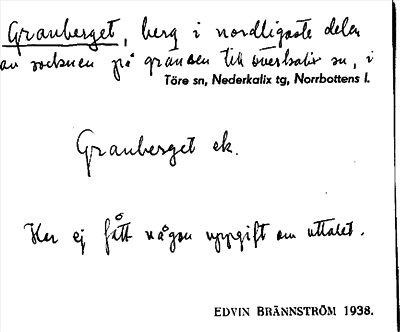 Granberget, berg i nordligaste delen
av socknen på gränsen till Överkalix sn, i
Töre sn, Nederkalix tg, Norrbottens l.
Granberget ek.
Har ej fått någon uppgift om uttalet.
EDVIN BRÄNNSTRÖM 1938.